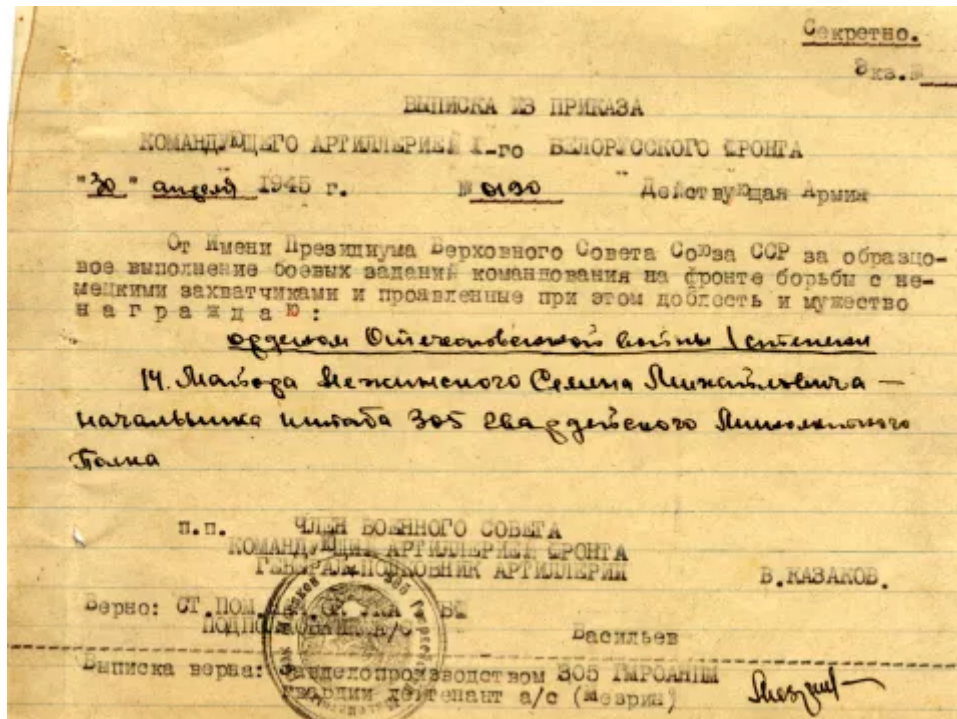 Секретно.
Экз.№
ВЫПИСКА ИЗ ПРИКАЗА
КОМАНДУЮЩЕГО АРТИЛЛЕРИЕЙ I-го БЕЛОРУССКОГО ФРОНТА
"30" апреля 1945 г. № 0190 Действующая Армия
От Имени Президиума Верховного Совета Союза ССР за образцо-
вое выполнение боевых заданий командования на фронте борьбы с не-
мецкими захватчиками и проявленные при этом доблесть и мужество
н а г р а ж д а ю :
орденом Отечественной войны I степени
14. Майора Межинского Семена Михайловича –
начальника штаба 305 гвардейского Минометного
Полка
п.п. ЧЛЕН ВОЕННОГО СОВЕТА
КОМАНДУЮЩИЙ АРТИЛЛЕРИЕЙ ФРОНТА
ГЕНЕРАЛ-ПОЛКОВНИК АРТИЛЛЕРИИ В.КАЗАКОВ.
Верно: СТ.ПОМ.
ПОДПОЛКОВНИК А/С Васильев
Выписка верна: Завделопроизводством 305
гвардии лейтенант а/с (Мезрин)